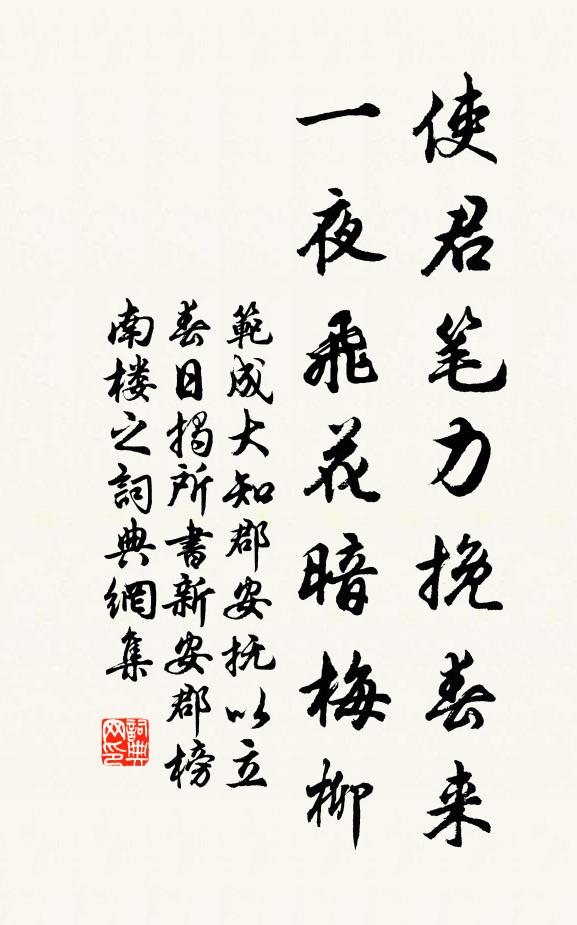 使君笔力挽春来
一夜飛花暗梅柳
範成大知郡安抚以立
春日揭所書新安郡榜
南楼之詞典網集
詞典网印